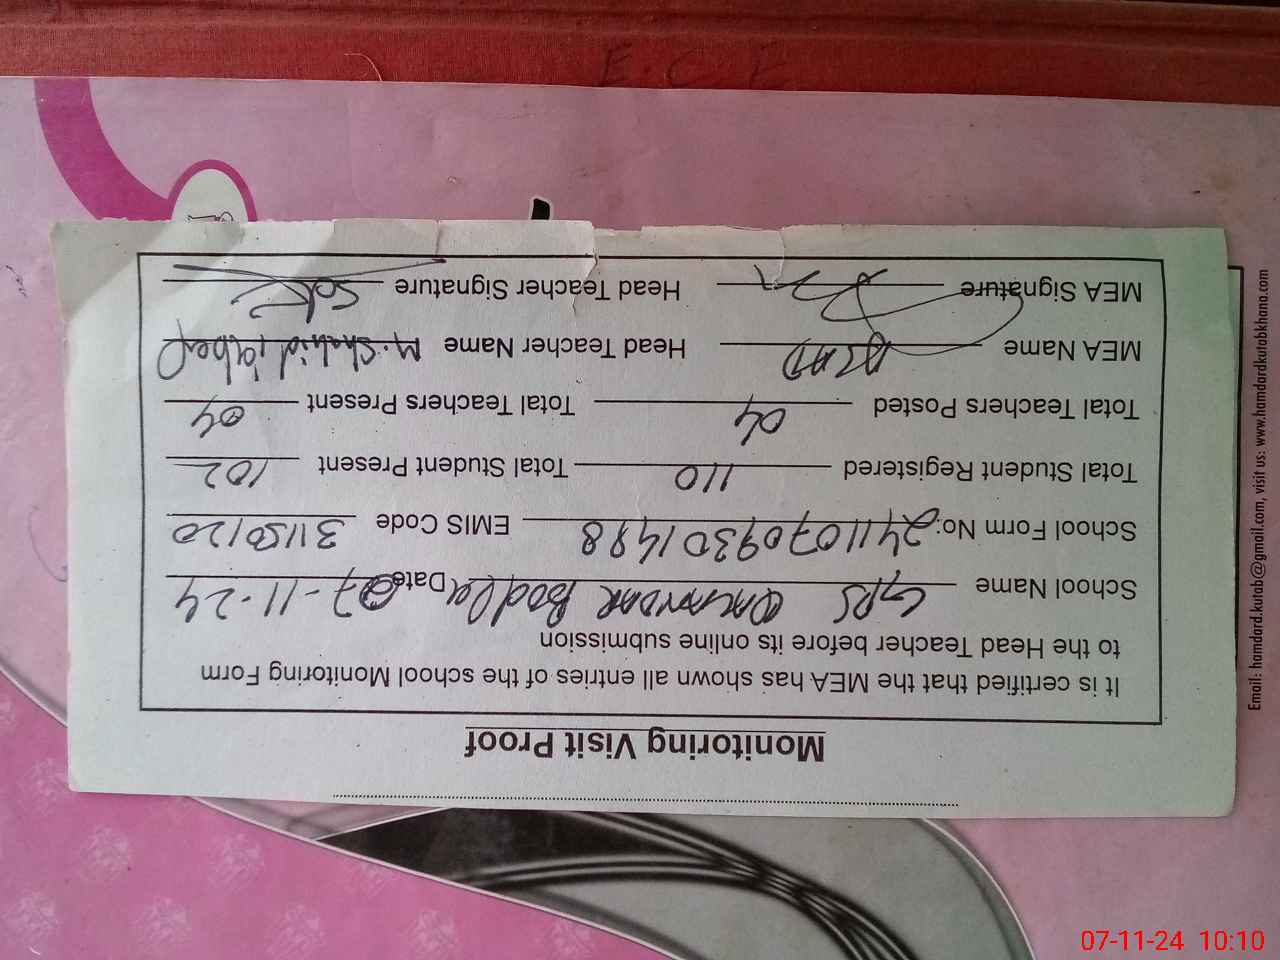 Monitoring Visit Proof
It is certified that the MEA has shown all entries of the school Monitoring Form
to the Head Teacher before its online submission
School Name GPS Bodla Date 07-11-24
School Form No: 24110709301498 EMIS Code 31150120
Total Student Registered 110 Total Student Present 102
Total Teachers Posted 04 Total Teachers Present 04
MEA Name ASAD Head Teacher Name M. Shahid Iqbal
MEA Signature Head Teacher Signature
Email: hamdard.kutab@gmail.com, visit us: www.hamdardkutabkhana.com
07-11-24 10:10